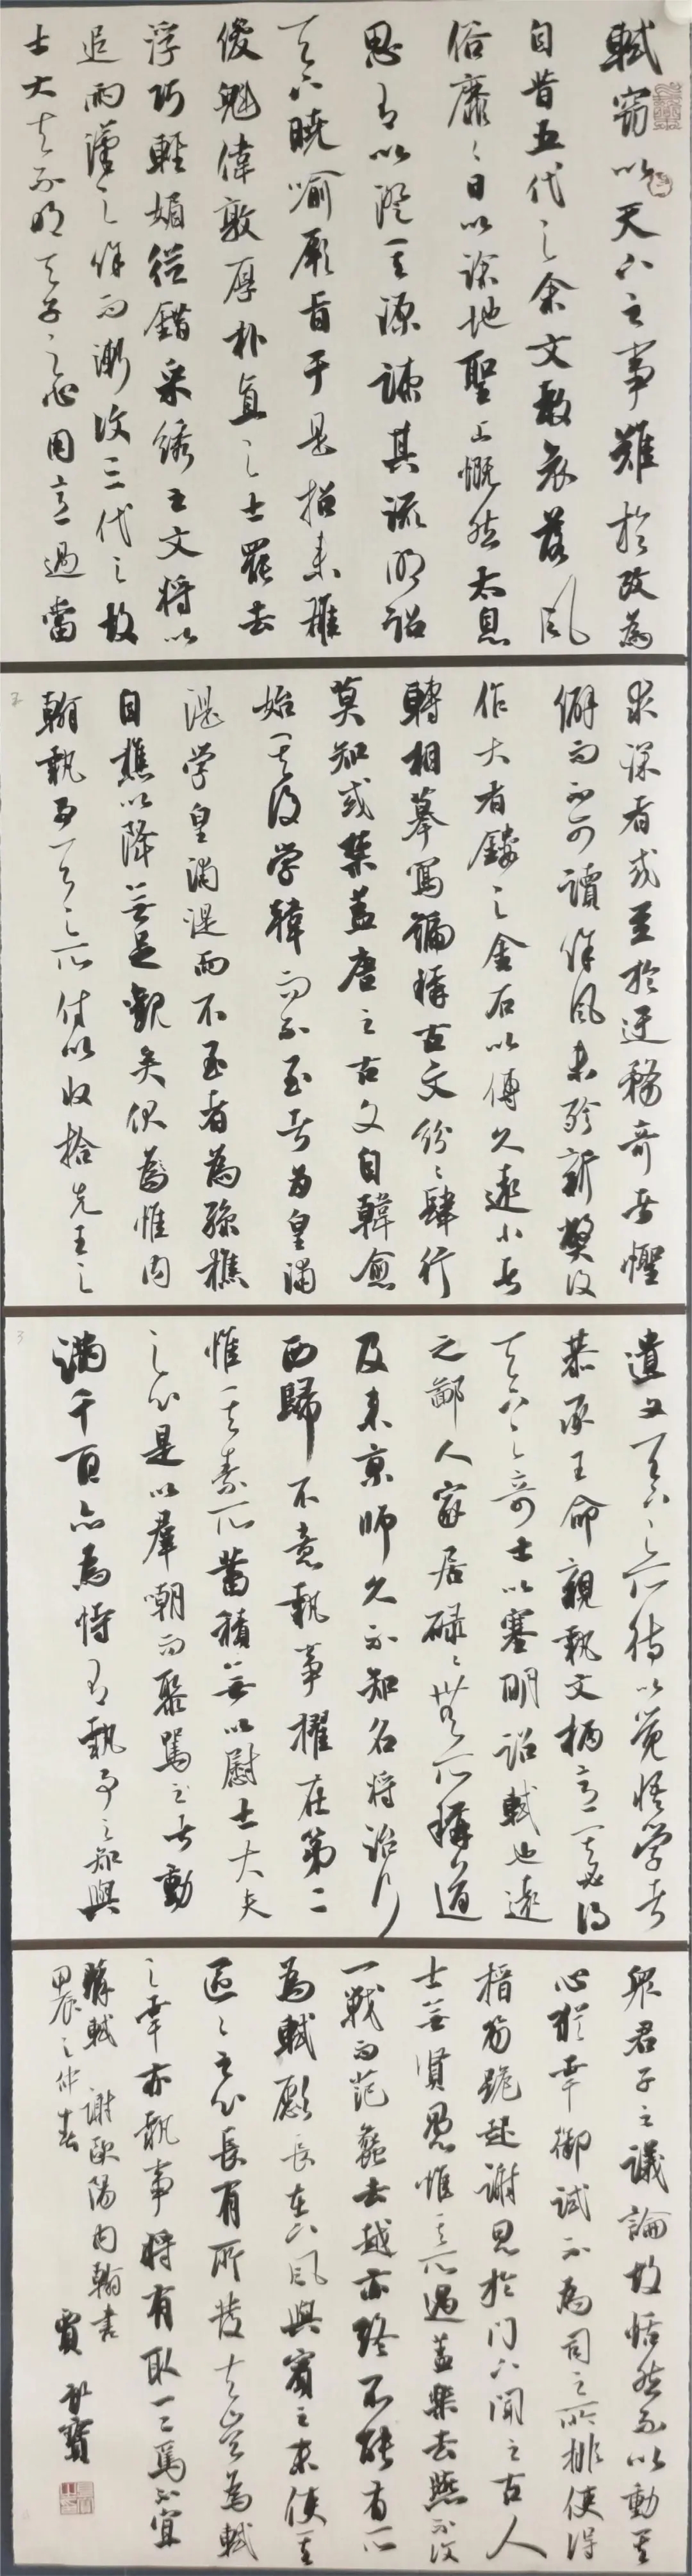 軾竊以天下之事難於改為
自昔五代之余文教衰落風
俗靡々日以涂地聖上慨然太息
思有以澄其源疏其流明詔
天下曉喻厥旨于是招来雄
俊魁偉敦厚朴直之士罷去
浮巧輕媚從錯采綉之文將以
追兩漢之餘而漸復三代之故
士大夫不明天子之心用意過當
求深者或至於迂務奇者怪
僻而不可讀餘風未殄新弊復
作大者鏤之金石以傳久遠小者
轉相摹寫編稱古文紛々肆行
莫知或禁蓋唐之古文自韓愈
始其後學韓而不至者為皇甫
湜学皇甫湜而不至者為孫樵
自樵以降無足觀矣伏為惟内
翰執事天之所付以收拾先王之
遺文天下之所待以覺悟學者
恭承王命親執文柄意其必得
天下之奇士以塞明詔軾也遠
之鄙人家居碌々無所稱道
及来京師久不知名將治行
西歸不意執事擢在第二
惟其素所蓄積無以慰士大夫
之心是以羣嘲而聚駡者動
滿千百亦為恃有執事之知與
衆君子之議論故恬然不以動其
心猶幸御試不為有司之所排使得
搢笏跪起謝恩於門下聞之古人
士無賢愚惟其所遇蓋樂去燕不復
一戰而范蠡去越亦終不能有所
為軾願長在下風與賓之末使其
區々之心長有所發夫豈為軾
之幸亦執事將有取一二焉不宣
蘇軾 謝歐陽内翰書
甲辰之仲春